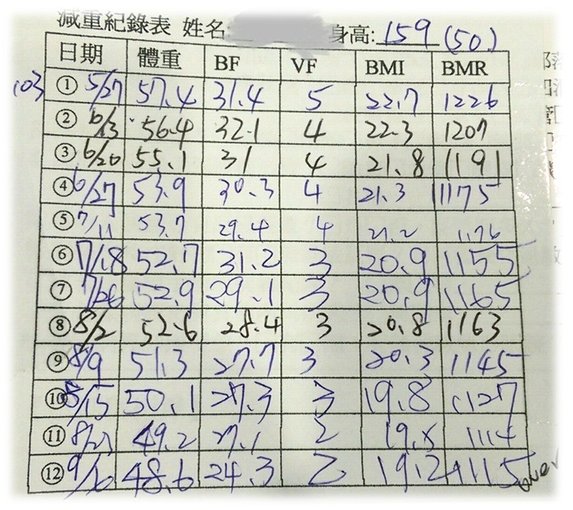 減重紀錄表 姓名 身高: 159 (50)
日期 體重 BF VF BMI BMR
103 ① 5/27 57.4 31.4 5 22.7 1226
② 6/13 56.4 32.1 4 22.3 1207
③ 6/20 55.1 31 4 21.8 1191
④ 6/27 53.9 30.3 4 21.3 1175
⑤ 7/11 53.7 29.4 4 21.2 1176
⑥ 7/18 52.7 31.2 3 20.9 1155
⑦ 7/26 52.9 29.1 3 20.9 1165
⑧ 8/2 52.6 28.4 3 20.8 1163
⑨ 8/9 51.3 27.7 3 20.3 1145
⑩ 8/15 50.1 27.3 3 19.8 1127
⑪ 49.2 27.1 2 1114
⑫ 48.6 24.3 2 19.2 1115